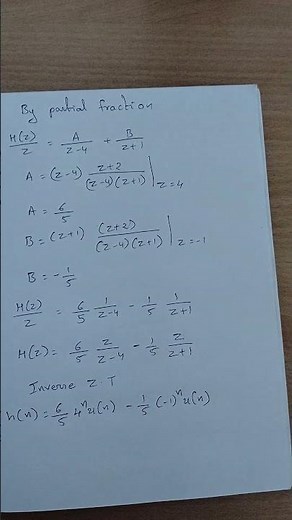 By partial fraction
H(z)/z = A/(z-4) + B/(z+1)
A = (z-4) (z+2)/((z-4)(z+1)) |z=4
A = 6/5
B = (z+1) (z+2)/((z-4)(z+1)) |z=-1
B = -1/5
H(z)/z = 6/5 1/(z-4) - 1/5 1/(z+1)
H(z) = 6/5 z/(z-4) - 1/5 z/(z+1)
Inverse Z.T
h(n) = 6/5 4^n u(n) - 1/5 (-1)^n u(n)